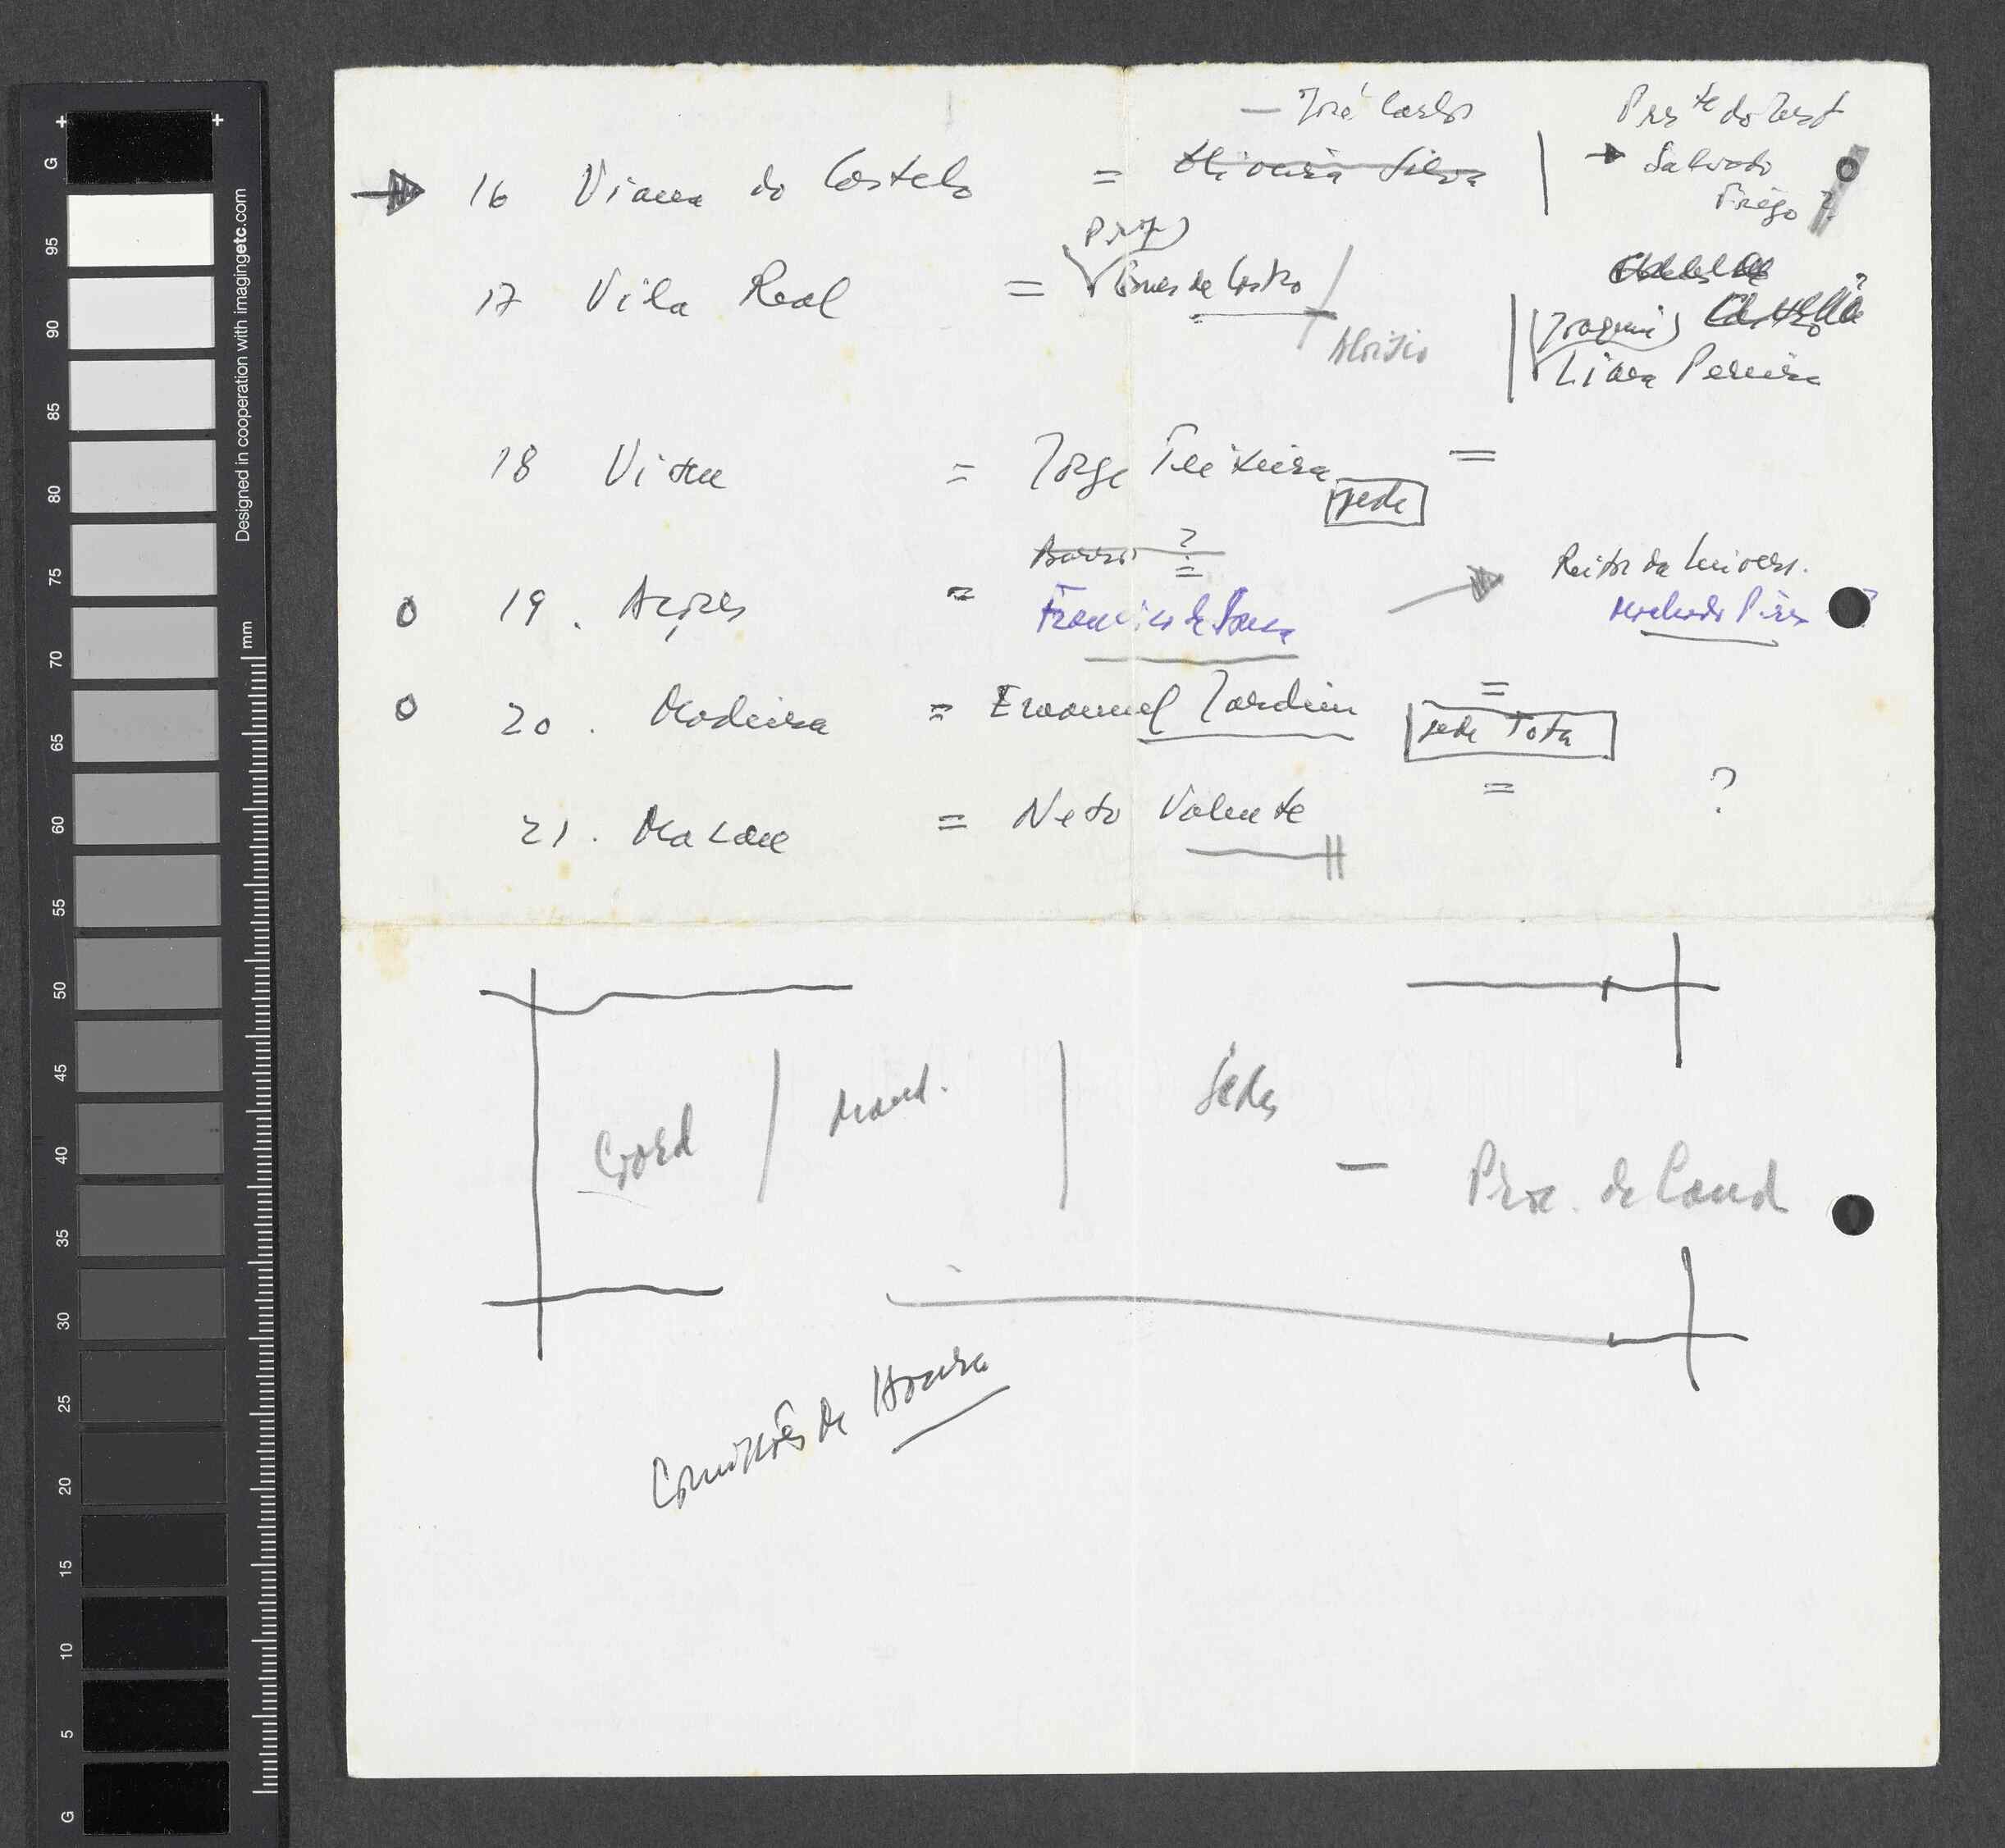 - José Carlos
Pres te do Inst
→ 16 Viana do Castelo = Oliveira Silva | → Salvato
Trigo ?
(Prof)
17 Vila Real = Nunes de Castro /
Aloísio
Joaquim
Lima Pereira
18 Viseu = Jorge Teixeira =
sede
Barros ?
Reitor da Univers.
o 19 . Açores = Francisco de Sousa → Machado Pires ?
o 20 . Madeira = Emanuel Jardim =
sede Tota
21 . Macau = Neto Valente = ?
Coord | Mand. | Sedes
- Proc. de Cand
Comissões de Honra
G
95
90
85
80
75
70
65
60
55
50
45
40
35
30
25
20
15
10
5
G
mm
Designed in cooperation with imagingetc.com